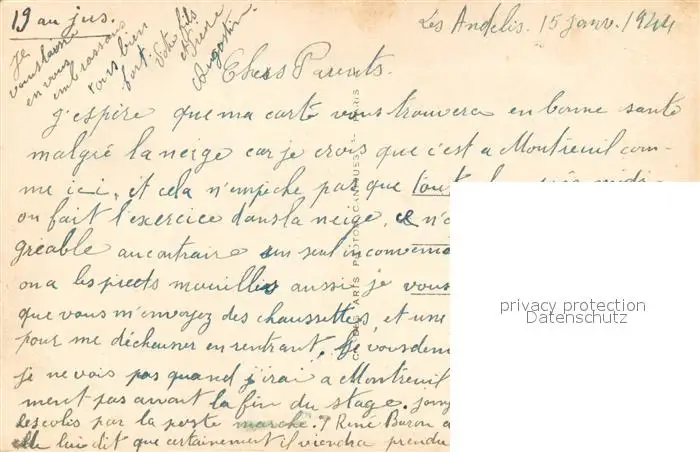 19 au jus.
Les Andelis. 15 janv. 1944
je
vous laisse
en vous
embrassant
tous bien
fort.
Votre fils
et frère
Augustin.
Chers Parents.
j'espère que ma carte vous trouvera en bonne santé
malgré la neige car je crois que c'est a Montreuil com-
me ici, et cela n'empêche pas que tout
on fait l'exercice dans la neige, ce n'
gréable au contraire un seul inconvenie
on a les pieds mouillés aussi je vous
que vous m'envoyez des chaussettes, et une
pour me déchausser en rentrant, Je vous dem
je ne vois pas quand j'irai a Montreuil
ment pas avant la fin du stage.
les colis par la poste marche? René Buron a
elle lui dit que certainement il viendra prendre
PHOTO
ARTS
PARIS
privacy protection
Datenschutz